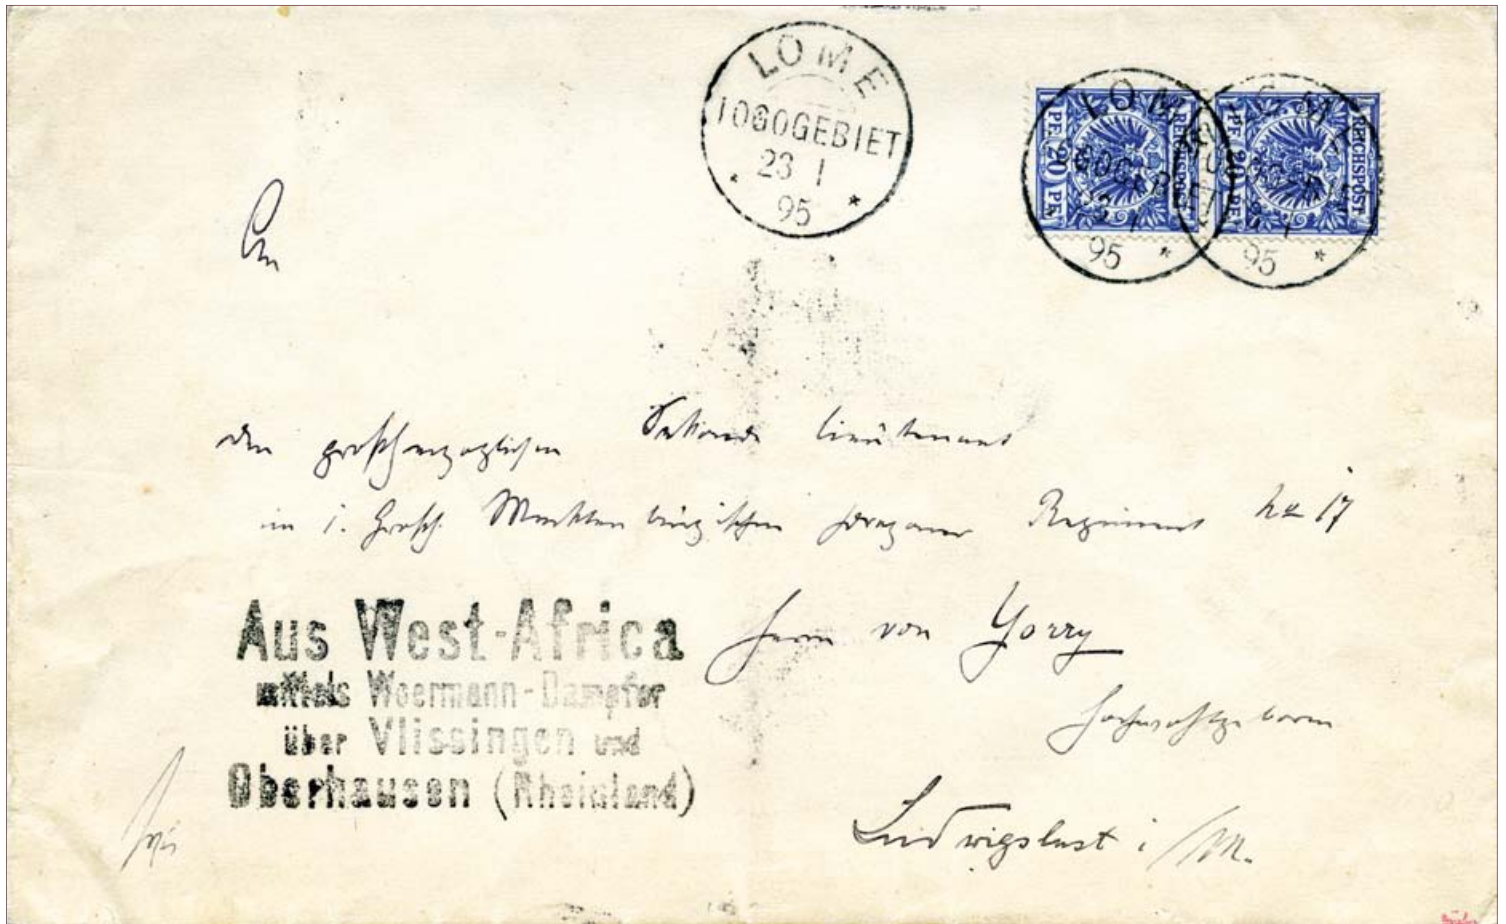 LOME
TOGOGEBIET
23 1
95
LOME
TOGOGEBIET
23 1
95
LOME
TOGOGEBIET
23 1
95
REICHSPOST
PF. 20 PF.
REICHSPOST
PF. 20 PF.
An
den großherzoglichen Sekonde Lieutenant
im 1. Großh. Mecklenburgischen Dragoner Regiment No 17
Herrn von
Hochwohlgeboren
Ludwigslust i/M.
Aus West-Africa
mittels Woermann-Dampfer
über Vlissingen und
Oberhausen (Rheinland)